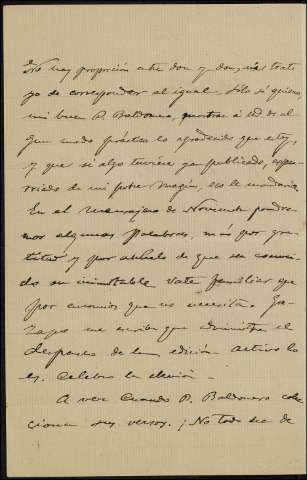 No hay proporción entre don y don, ni trato
yo de corresponder al igual. Sólo sí quiero,
mi buen P. Baldomero, mostrar á Vd de al-
gun modo práctico lo agradecido que estoy,
y que si algo tuviera ya publicado,
de mi pobre magín, se lo mandaría.
En el mensajero de Noviembre pondre-
mos algunas palabras, más por gra-
titud y por anhelo de que sea conoci-
do su inimitable vate familiar que
por encomios que no necesita.
me escribe que administra el
despacho de la edición. activo lo
es. Celebro la elección.
A ver cuando P. Baldomero cole-
cciona sus versos. ¡No todo ha de